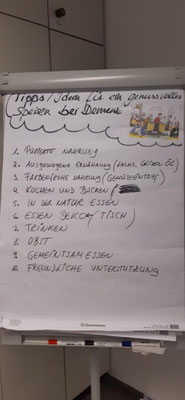 Tipps / Ideen für ein genussvolles
Speisen bei Demenz
1. PÜRIERTE NAHRUNG
2. AUSGEWOGENE ERNÄHRUNG (LACHS, LEINEN ÖL)
3. FARBENFROHE NAHRUNG (GEMÜSEEINTOPF)
4. KOCHEN UND BACKEN
5. IN DER NATUR ESSEN
6. ESSEN (TISCH)
7. TRINKEN
8. OBST
9. GEMEINSAM ESSEN
10. FREUNDLICHE UNTERSTÜTZUNG